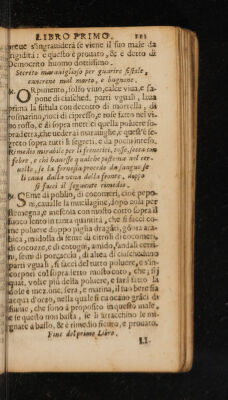 LIBRO PRIMO. 111
preue s'ingrauiderà se viene il suo male da
frigidità: e questo è prouato, & è detto di
Democrito huomo dottissimo.
Secreto marauiglioso per guarire fistole,
cancrene mal morto, e bugnone.
ORpimento, solfo viuo, calce viua, e sa-
pone di ciascheduno parti vguali, laua
prima la fistula con decotto di mortella, di
rosmarino, noci di cipresso, e rose fatto nel vi-
no rosso, e di sopra metteci quella poluere so-
pradetta, che vederai marauiglie, e quest'è se-
greto sopra tutti li segreti, e da pochi inteso.
Rimedio mirabile per li frenetici, tosse, secco con
febre, e chi hauesse qualche postema nel cer-
uello, se la
si caua dalla vena della fronte, dopo
si facci il seguente rimedio.
SEme di cocomeri, cioè pepo-
ni, cauisi le mucilagine, dopo cola per
e mescola con mosto cotto sopra il
foco lento in tanta quantità, che si facci co-
me poluere doppo piglia draganti, goma ara-
bica, midolla di seme di citroli di cocomeri,
di cocozze, e di cotogni, amido, sandali cetri-
ni, semi di porcaccia, di altea di ciascheduno
parti vguali, si facci del tutto poluere, e s'in-
corpori col sopra detto mosto coto, che,
quat. volte più della poluere, e farà fatto la
sera, e matina, il tuo bere sia
acqua d'orzo, nella quale si cacano
che sono à proposito in questo male,
e se questo non basta, se li attacchino le mi-
gnate à basso, & è rimedio sicuro, e prouato.
Fine del primo Libro.
LI-